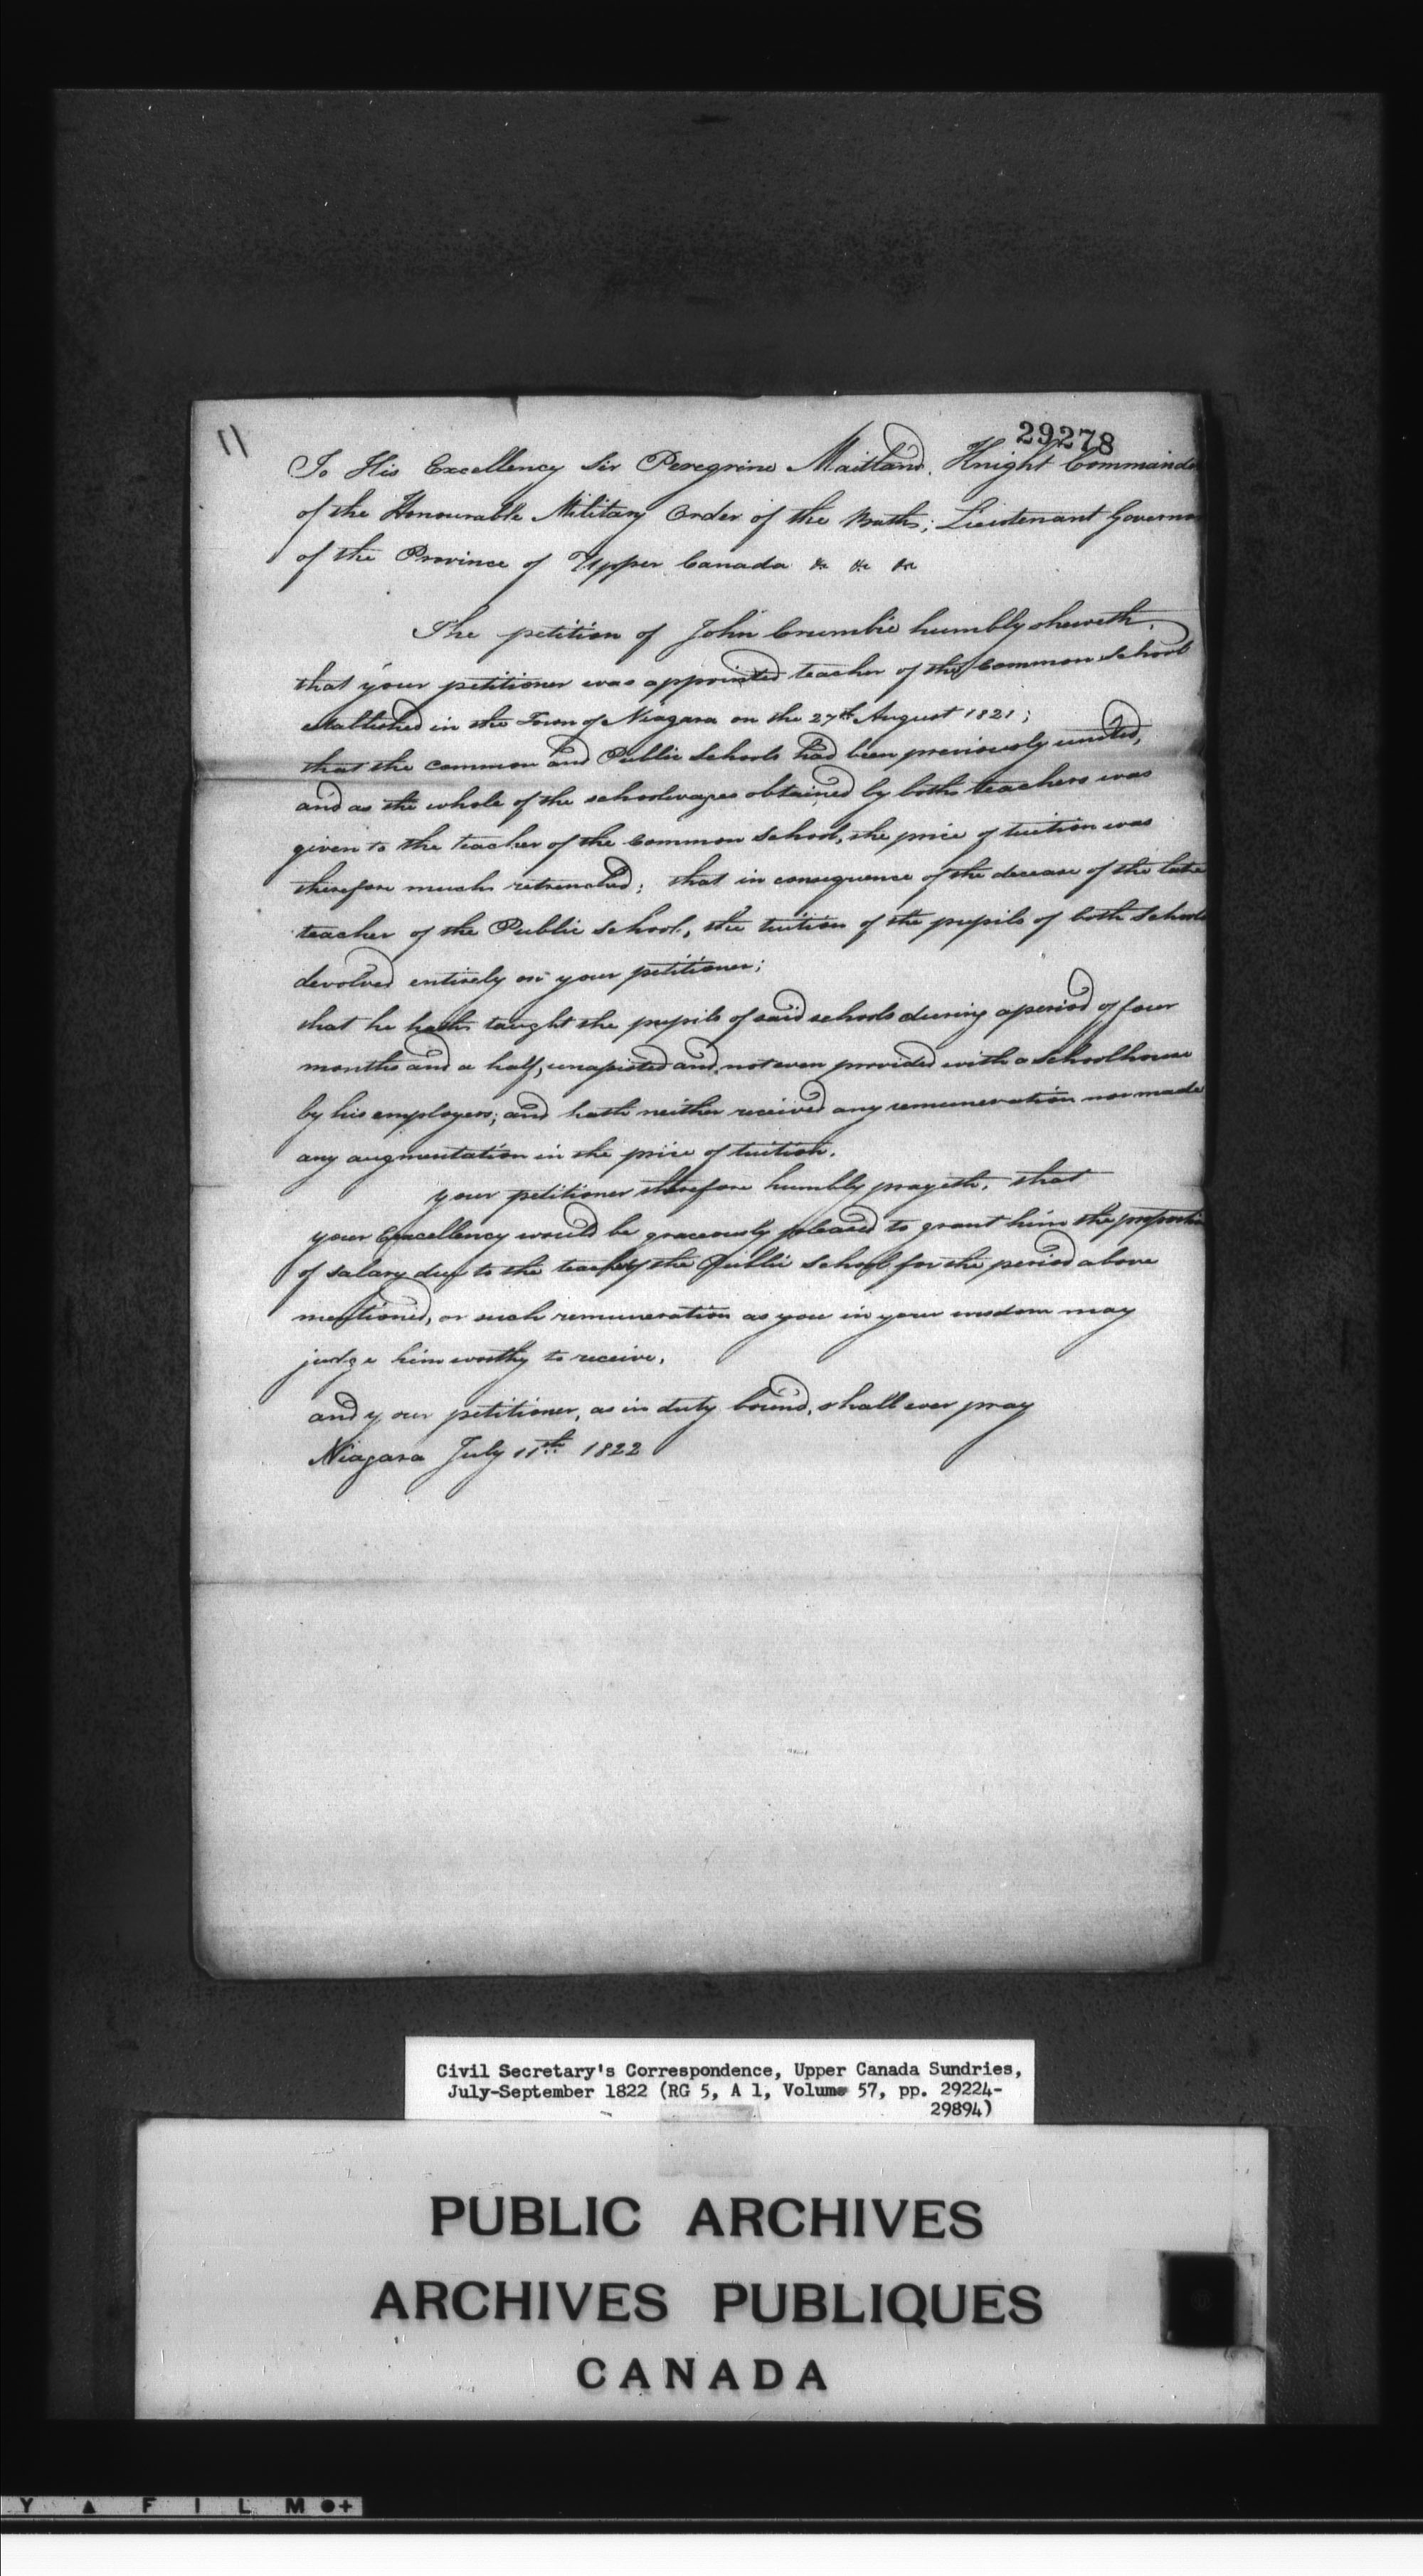 11
29278
To His Excellency Sir Peregrine Maitland, Knight Commande
of the Honourable Military Order of the Bath; Lieutenant Governo
of the Province of Upper Canada &c &c &c
The petition of John Crumbie humbly sheweth,
that your petitioner was appointed teacher of the Common School
established in the Town of Niagara on the 27th August 1821;
that the common and Public Schools had been previously united,
and as the whole of the schoolwages obtained by both teachers was
given to the teacher of the Common School, the price of tuition was
therefore much retrenched; that in consequence of the decease of the late
teacher of the Public School, the tuition of the pupils of both Schools
devolved entirely on your petitioner;
that he hath taught the pupils of said schools during a period of four
months and a half, unassisted and not even provided with a Schoolhouse
by his employers; and hath neither received any remuneration nor made
any augmentation in the price of tuition.
your petitioner therefore humbly prayeth, that
your Excellency would be graciously pleased to grant him the proportion
of salary due to the teacher of the Public School for the period above
mentioned, or such remuneration as you in your wisdom may
judge him worthy to receive,
and your petitioner, as in duty bound, shall ever pray
Niagara July 11th 1822
Civil Secretary's Correspondence, Upper Canada Sundries,
July-September 1822 (RG 5, A 1, Volume 57, pp. 29224-
29894)
PUBLIC ARCHIVES
ARCHIVES PUBLIQUES
CANADA
Y ▲ F I L M ●+